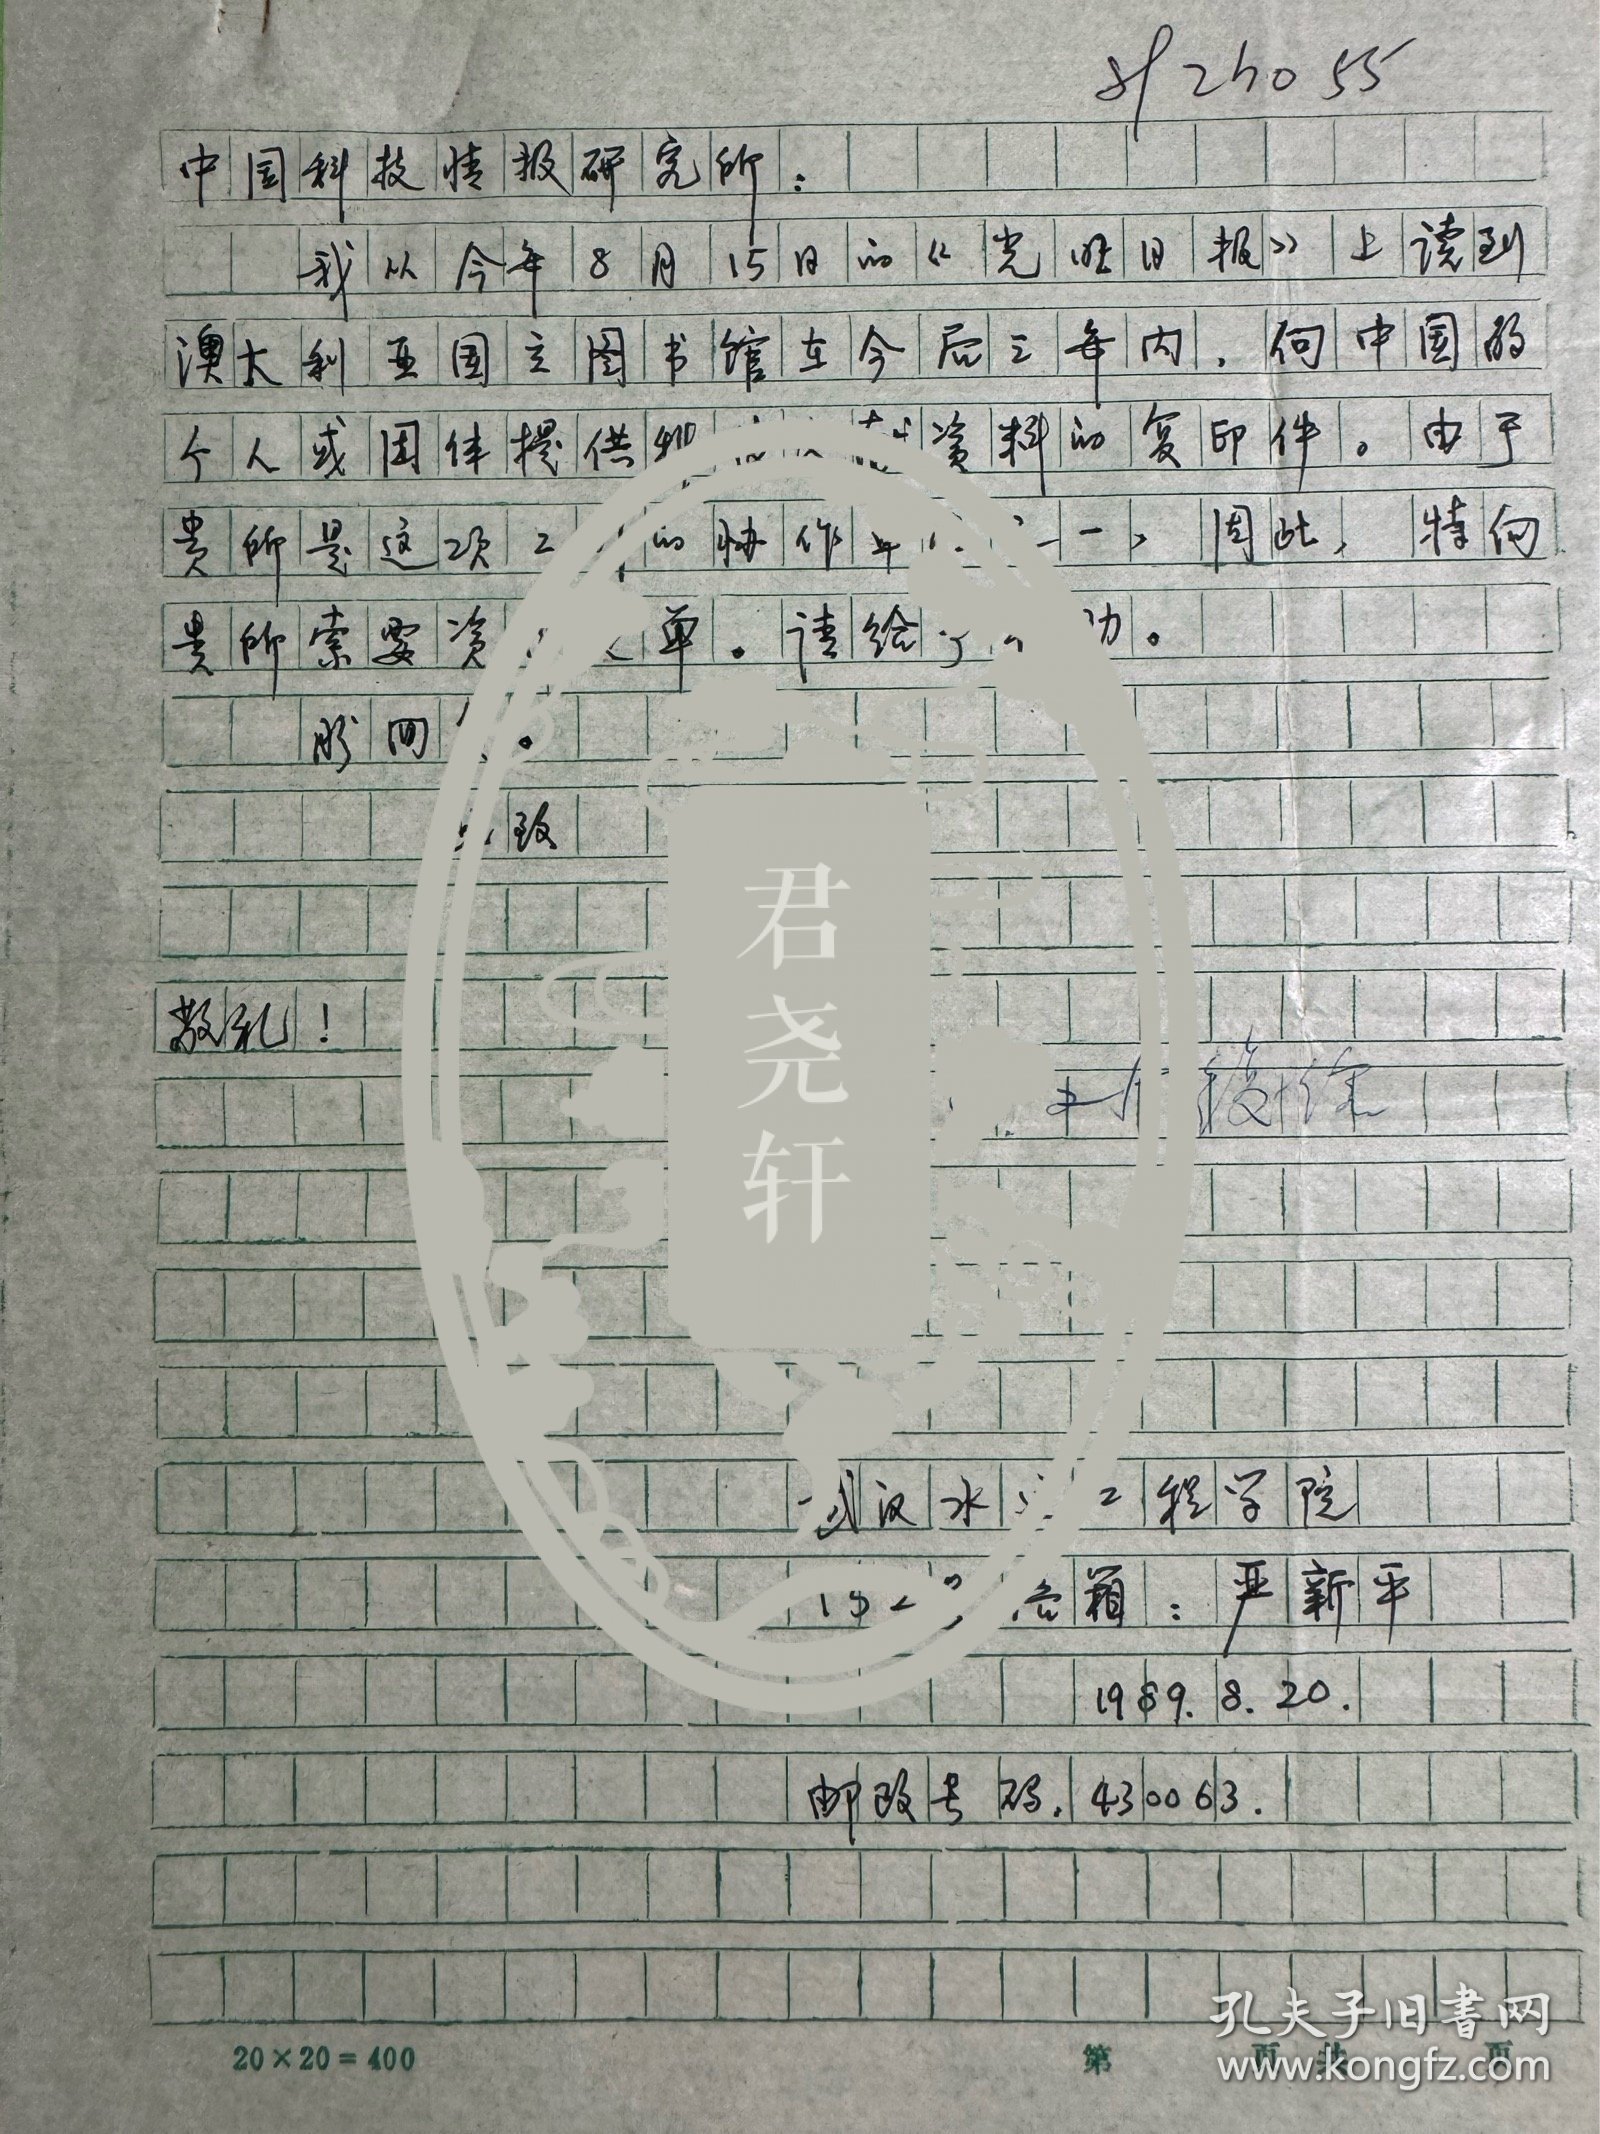 中国科技情报研究所：
我从今年8月15日的《光明日报》上读到
澳大利亚国立图书馆在今后三年内，向中国的
个人或团体提供科技文献资料的复印件。由于
贵所是这项工作的协作单位之一，因此，特向
贵所索要资料订单。请给予协助。
盼回信。
此致
敬礼！
君尧轩
武汉水运工程学院
信箱：严新平
1989.8.20.
邮政号码.430063.
20×20=400
第 页 共 页
孔夫子旧书网
www.kongfz.com